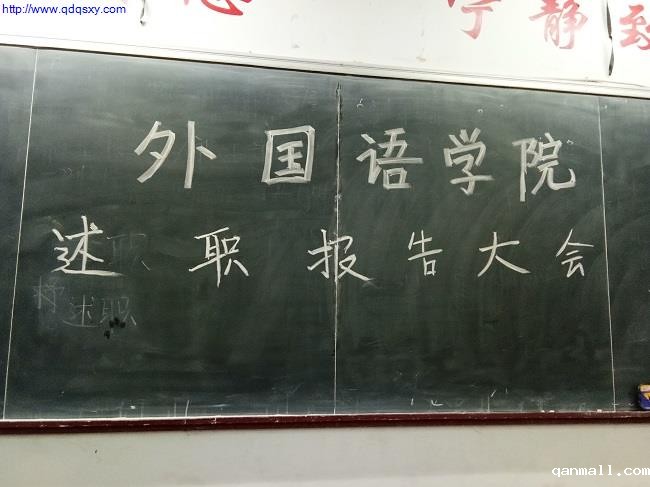 http://www.qdqsxy.com
宁静致
外国语学院
述职报告大会
述职
qanmall.com